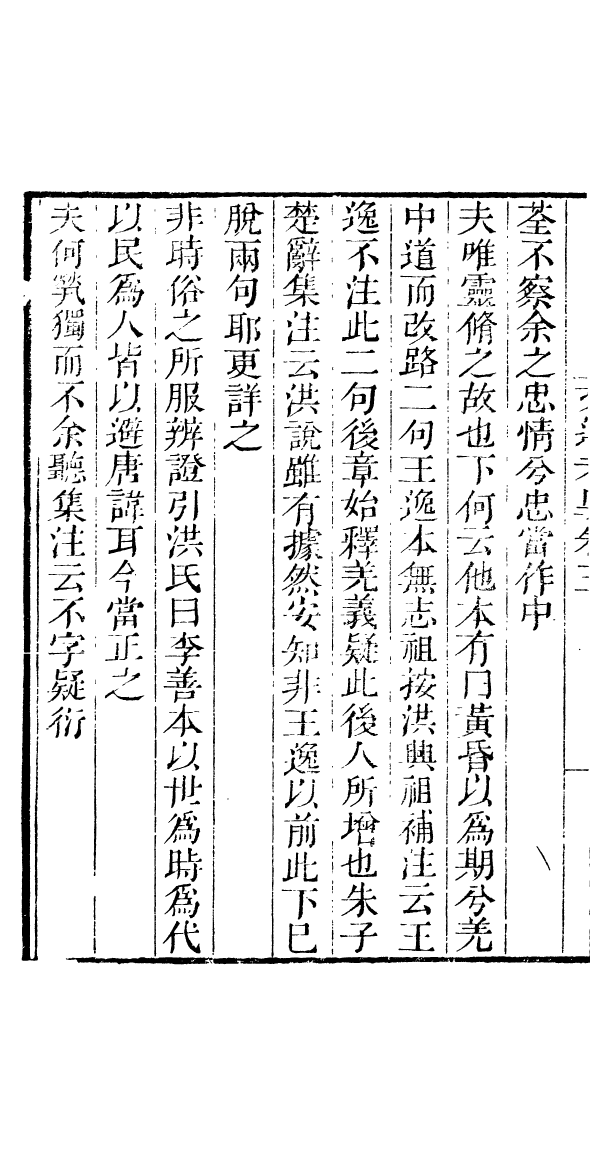 荃不察余之忠情兮忠當作中
夫唯靈脩之故也下何云他本有曰黃昏以為期兮羌
中道而改路二句王逸本無志祖按洪興祖補注云王
逸不注此二句後章始釋羌義疑此後人所增也朱子
楚辭集注云洪說雖有據然安知非王逸以前此下已
脫兩句耶更詳之
非時俗之所服辨證引洪氏曰李善本以世為時為代
以民為人皆以避唐諱耳今當正之
夫何煢獨而不余聽集注云不字疑衍